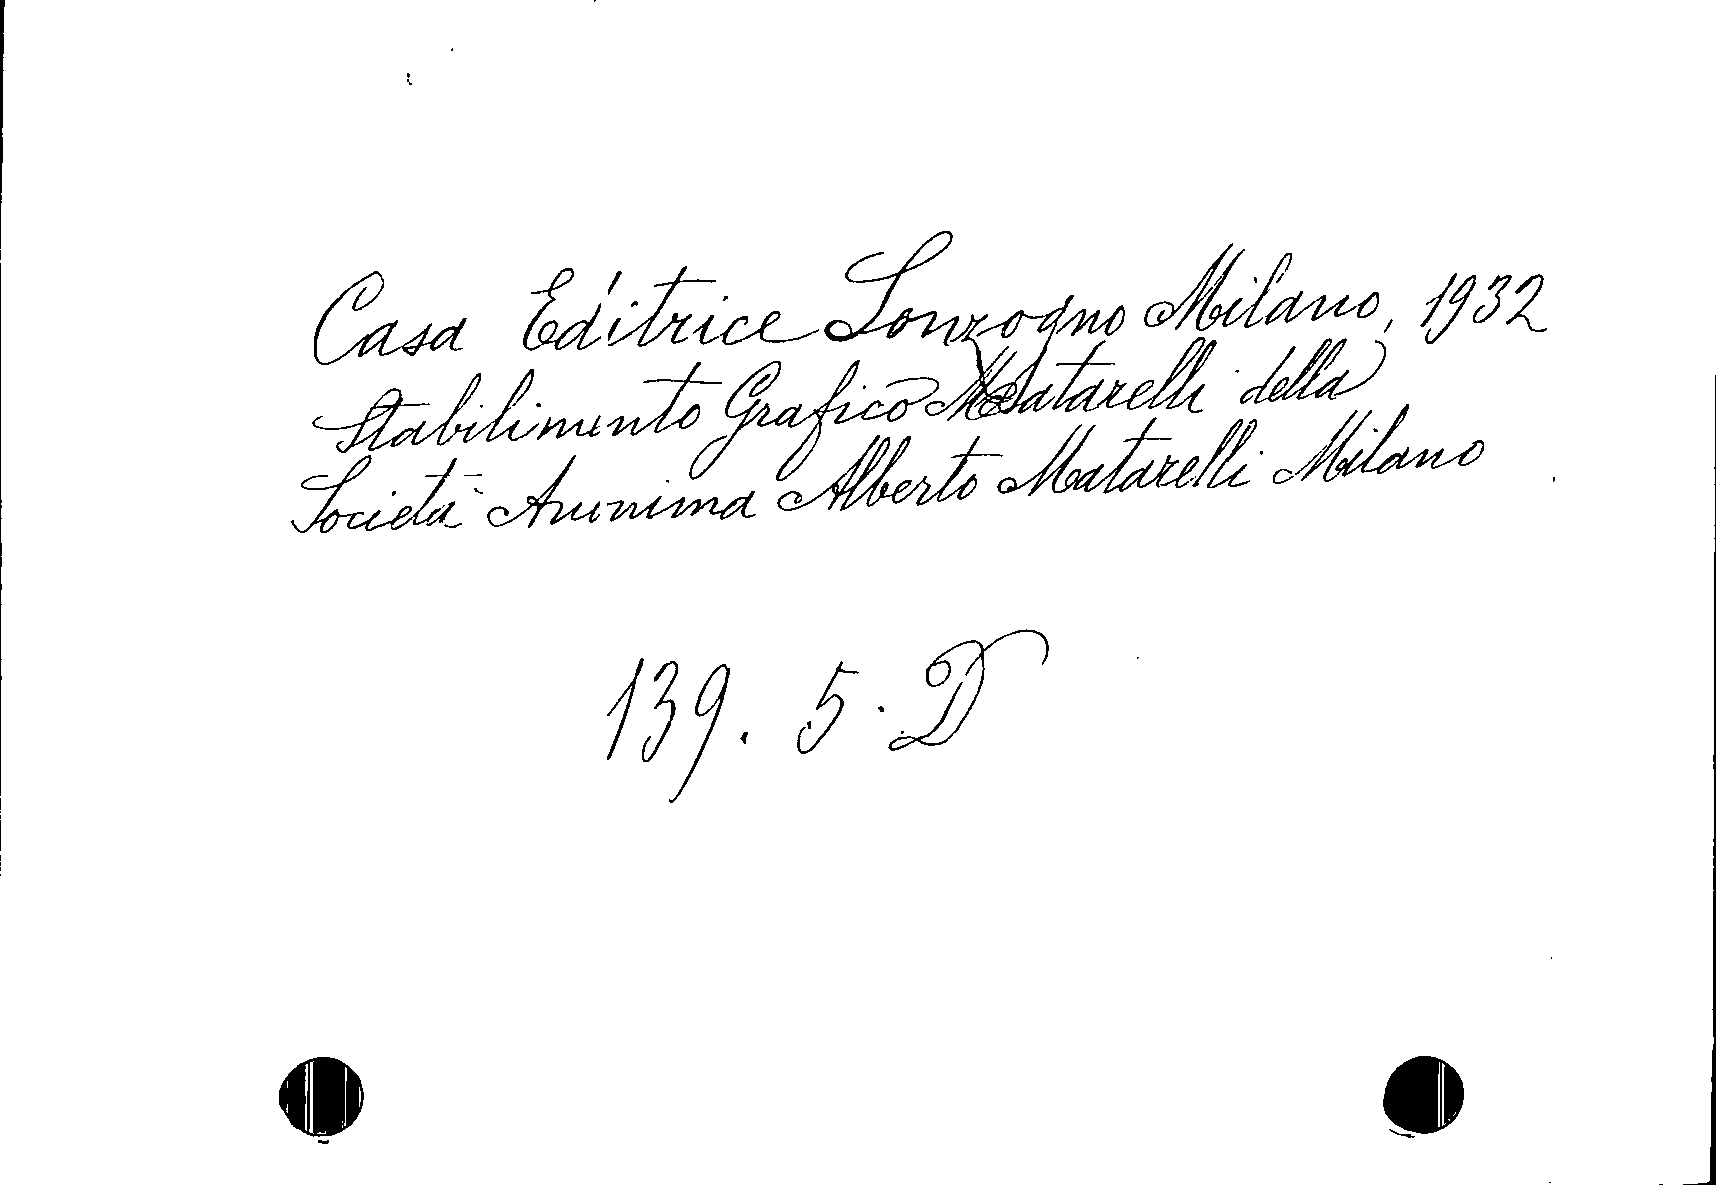 Casa Editrice Sonzogno Milano, 1932
Stabilimento Grafico Matarelli della
Società Anonima Alberto Matarelli Milano
139. 5. D